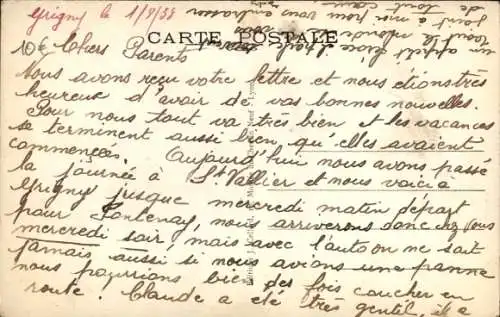 Grigny le 1/9/55
CARTE POSTALE
10€ Chers Parents
Nous avons reçu votre lettre et nous étions très
heureux d'avoir de vos bonnes nouvelles.
Pour nous tout va très bien et les vacances
se terminent aussi bien, qu'elles avaient
commencées. Aujourd'hui nous avons passé
la journée à St Vallier et nous voici à
Grigny jusque mercredi matin départ
pour Fontenay, nous arriverons donc chez vous
mercredi soir, mais avec l'auto on ne sait
jamais aussi si nous avions une panne
nous pourrions bien des fois coucher en
route. Claude a été très gentil, il a
un appétit
tout le monde
pour vous embrasser
de tout cœur